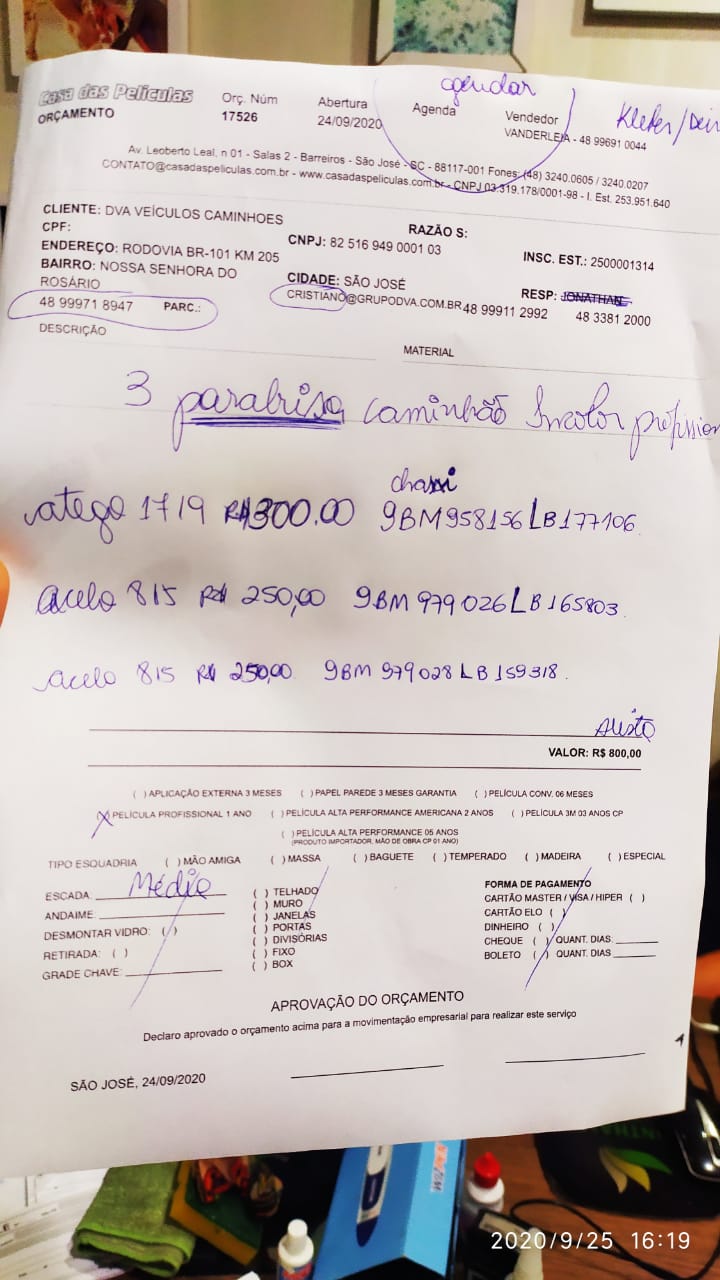 agendar
Casa das Películas
ORÇAMENTO
Orç. Núm
17526
Abertura
24/09/2020
Agenda
Vendedor
VANDERLEIA - 48 99691 0044
Kleber/Deir
Av. Leoberto Leal, n 01 - Salas 2 - Barreiros - São José - SC - 88117-001 Fones: (48) 3240.0605 / 3240.0207
CONTATO@casadaspeliculas.com.br - www.casadaspeliculas.com.br - CNPJ 03.319.178/0001-98 - I. Est. 253.951.640
CLIENTE: DVA VEÍCULOS CAMINHOES
RAZÃO S:
CPF:
CNPJ: 82 516 949 0001 03
INSC. EST.: 2500001314
ENDEREÇO: RODOVIA BR-101 KM 205
BAIRRO: NOSSA SENHORA DO ROSÁRIO
CIDADE: SÃO JOSÉ
RESP: JONATHAN
48 99971 8947
PARC.:
CRISTIANO@GRUPODVA.COM.BR
48 99911 2992
48 3381 2000
DESCRIÇÃO
MATERIAL
3 parabrisa caminhão Incolor profission
chassi
atego 1719 R$300.00 9BM958156LB177106
acelo 815 R$ 250,00 9BM979026LB165803
acelo 815 R$ 250,00 9BM979028LB159318
VALOR: R$ 800,00
( ) APLICAÇÃO EXTERNA 3 MESES ( ) PAPEL PAREDE 3 MESES GARANTIA ( ) PELÍCULA CONV. 06 MESES
(X) PELÍCULA PROFISSIONAL 1 ANO ( ) PELÍCULA ALTA PERFORMANCE AMERICANA 2 ANOS ( ) PELÍCULA 3M 03 ANOS CP
( ) PELÍCULA ALTA PERFORMANCE 05 ANOS
(PRODUTO IMPORTADOR, MÃO DE OBRA CP 01 ANO)
TIPO ESQUADRIA ( ) MÃO AMIGA ( ) MASSA ( ) BAGUETE ( ) TEMPERADO ( ) MADEIRA ( ) ESPECIAL
ESCADA: Médio
ANDAIME:
DESMONTAR VIDRO: ( )
RETIRADA: ( )
GRADE CHAVE:
( ) TELHADO
( ) MURO
( ) JANELAS
( ) PORTAS
( ) DIVISÓRIAS
( ) FIXO
( ) BOX
FORMA DE PAGAMENTO
CARTÃO MASTER / VISA / HIPER ( )
CARTÃO ELO ( )
DINHEIRO ( )
CHEQUE ( ) QUANT. DIAS:
BOLETO ( ) QUANT. DIAS
APROVAÇÃO DO ORÇAMENTO
Declaro aprovado o orçamento acima para a movimentação empresarial para realizar este serviço
SÃO JOSÉ, 24/09/2020
2020/9/25 16:19